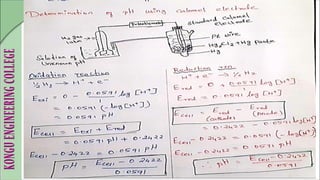 KONGU ENGINEERING COLLEGE
Determination of pH using calomel electrode
standard calomel
electrode
H₂ gas
1 atm
Pt wire
Hg₂Cl₂ + Hg paste
Hg
Solution of
Unknown pH
Oxidation reaction
½ H₂ → H⁺ + e⁻
= 0 - 0.0591 log [H⁺]
= 0.0591 (-log [H⁺])
= 0.0591 pH
Ecell = + Ered
Ecell = 0.0591 pH + 0.2422
Ecell - 0.2422 = 0.0591 pH
pH = Ecell - 0.2422 / 0.0591
Reduction rxn
H⁺ + e⁻ → ½ H₂
Ered = 0 + 0.0591 log [H⁺]
Ered = 0.0591 log [H⁺]
Ecell = Ered - Ered
(cathode) (Anode)
Ecell = 0.2422 - 0.0591 log [H⁺]
Ecell - 0.2422 = 0.0591 (-log [H⁺])
Ecell - 0.2422 = 0.0591 pH
∴ pH = Ecell - 0.2422 / 0.0591